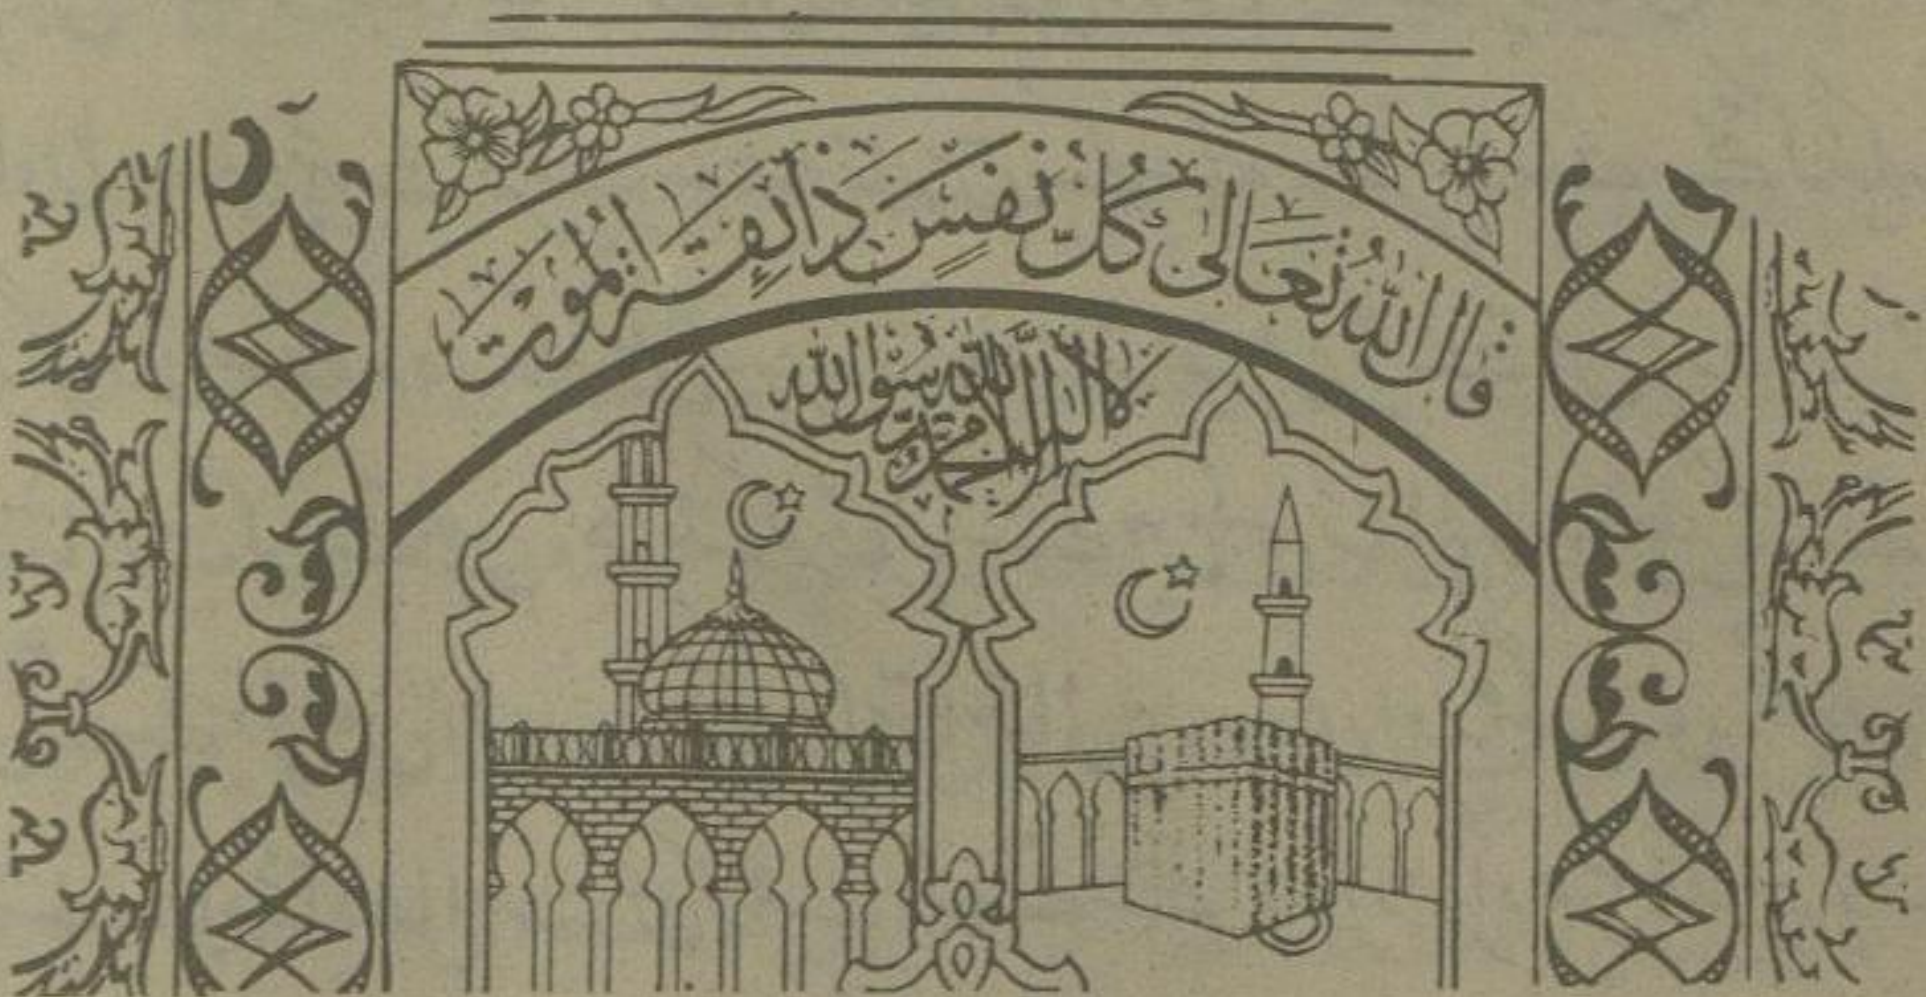 قال الله تعالى كُلُّ نَفْسٍ ذَائِقَةُ الْمَوْت
لا اله الا الله محمد رسول الله